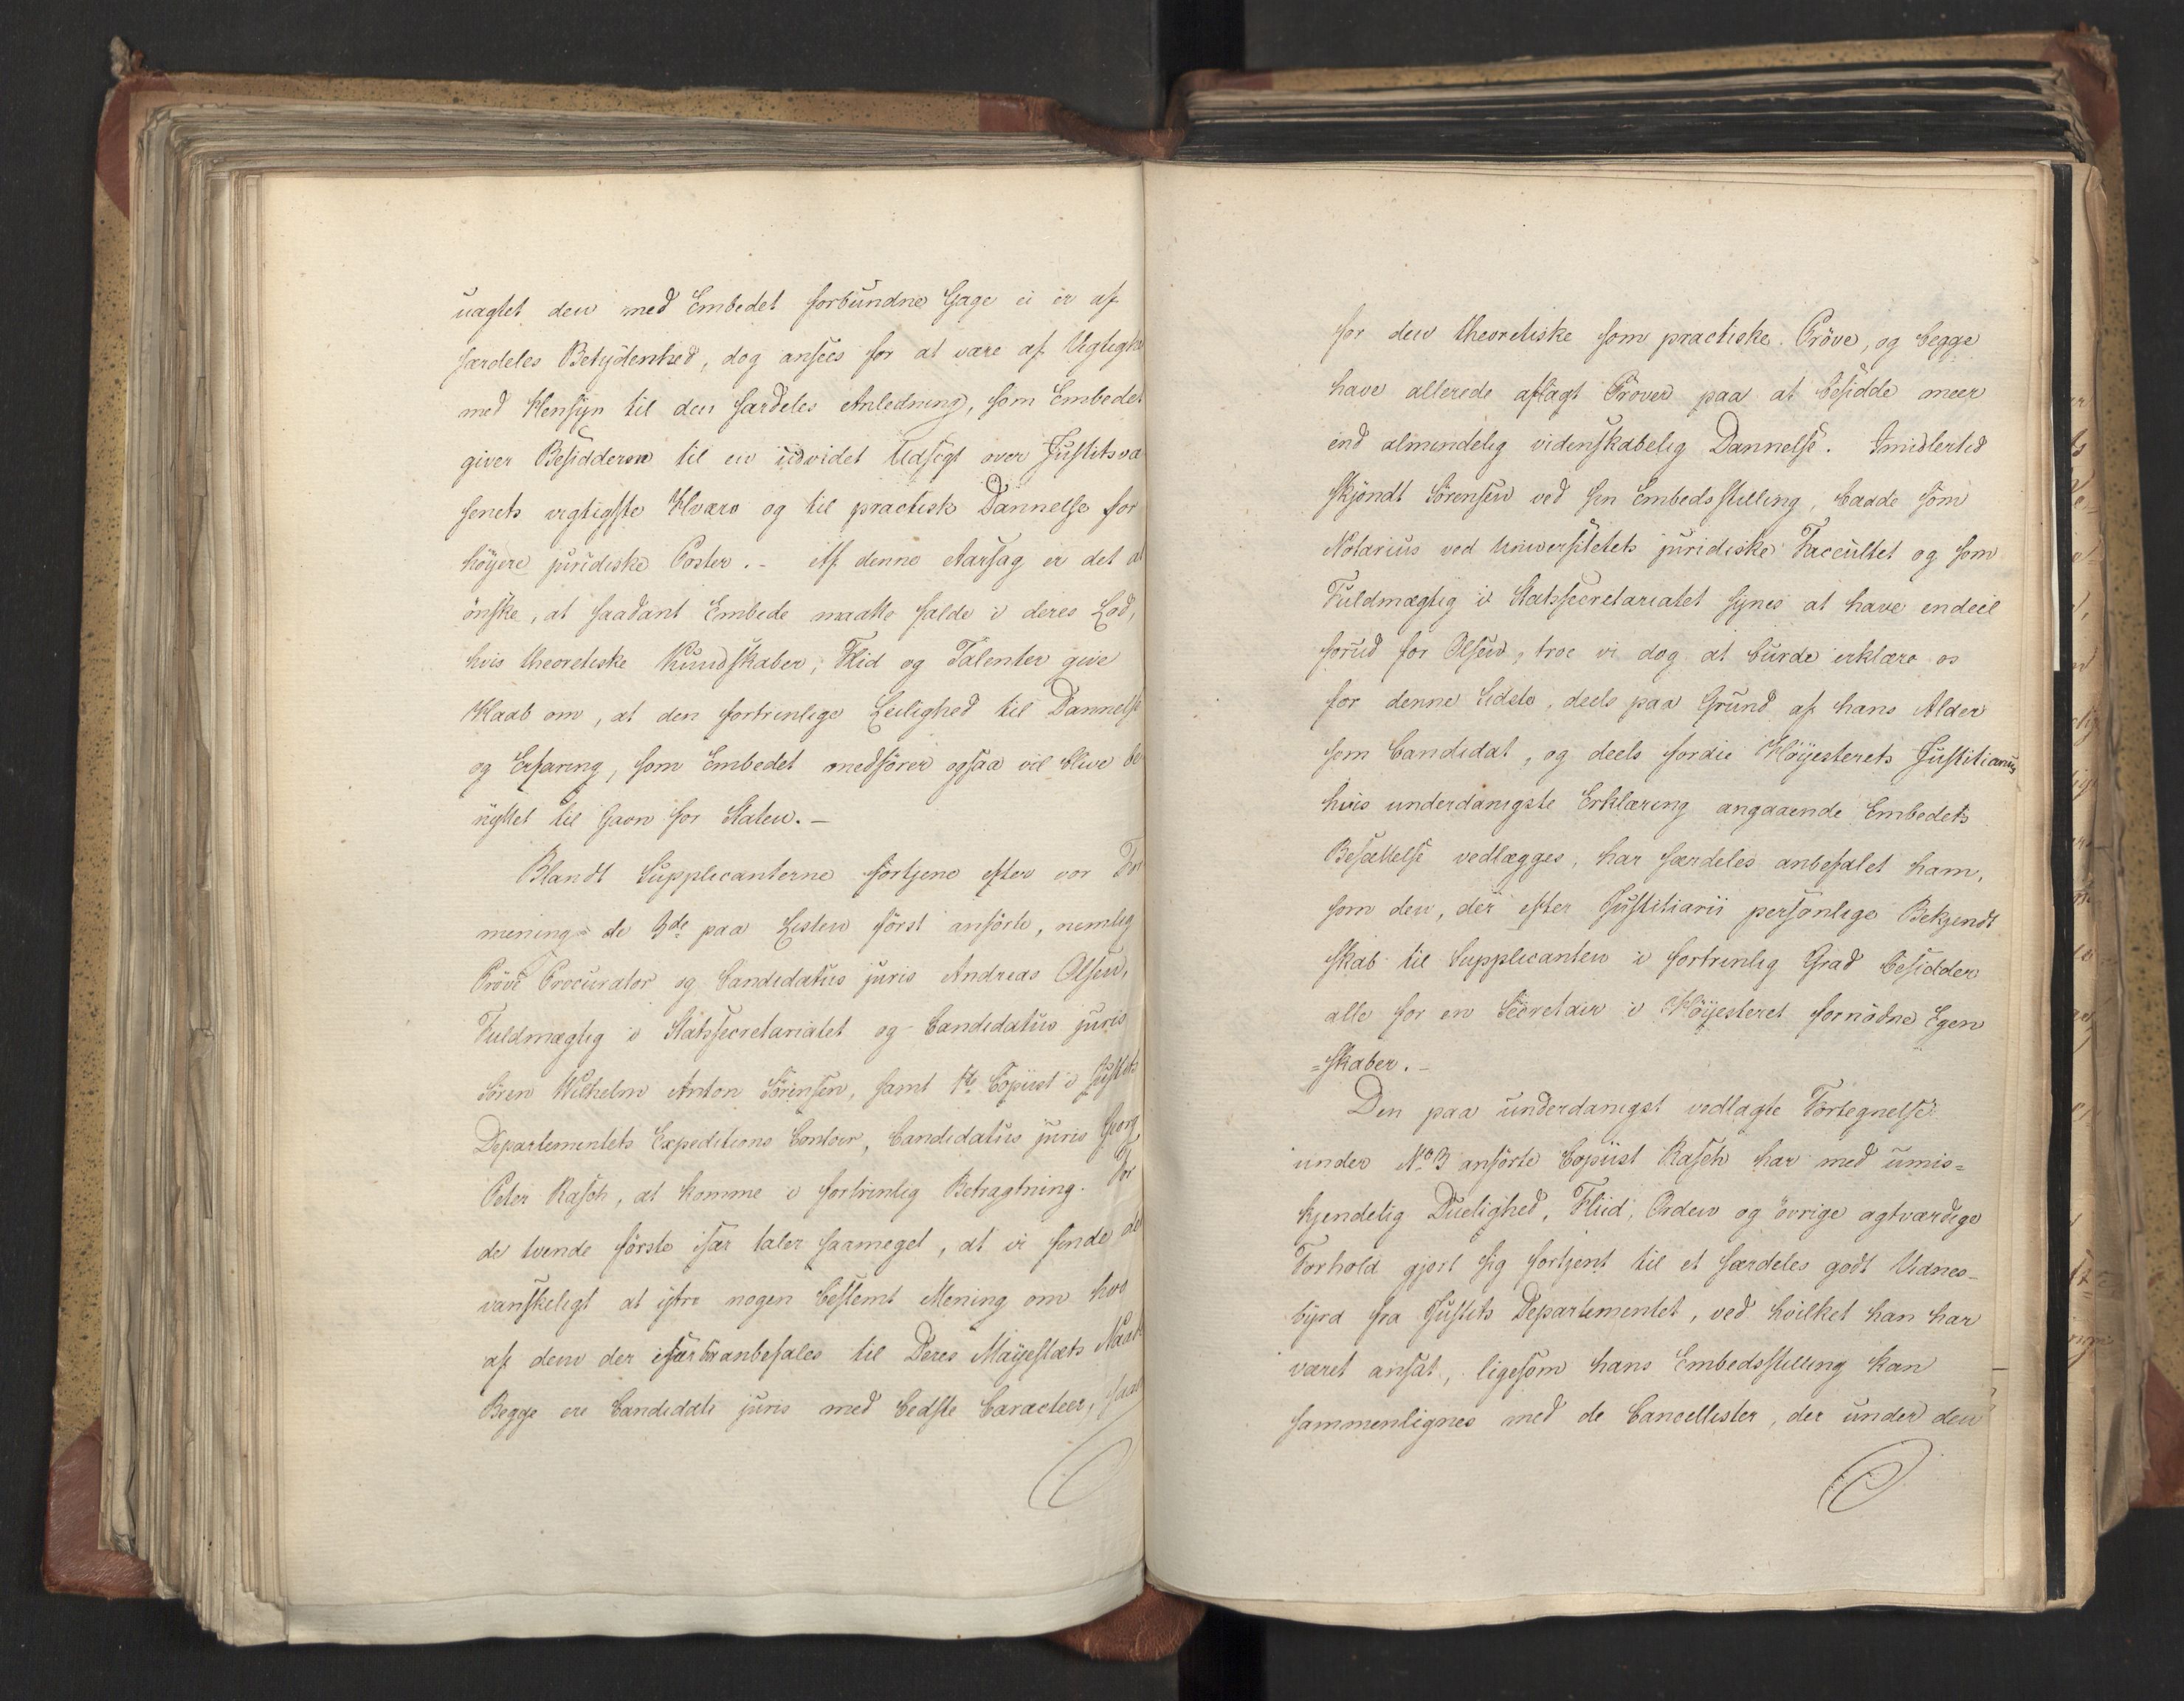 uagtet den med Embedet forbundne Gage ei er af
særdeles Betydenhed, dog ansees for at være af Vigtigh
med Hensyn til den særdeles Anledning, som Embedet
giver Besidderen til en udvidet Udsigt over Justitsvæ
senets vigtigste Hværv og til practisk Dannelse for
höyere juridiske Poster. - Af denne Aarsag er det at
önske, at saadant Embede maatte falde i deres Lod,
hvis theoretiske Kundskaber, Flid og Talenter give
Haab om, at den fortrinlige Leilighed til Dannelse
og Erfaring, som Embedet medförer ogsaa vil blive be
nyttet til Gavn for Staten. -
Blandt Supplicanterne fortjene efter vor For
mening de 3de paa Listen först anförte, nemlig
Pröve Procurator og Candidatus juris Andreas Olsen,
Fuldmægtig i Statssecretariatet og Candidatus juris
Sören Wilhelm Anton Sörensen, samt 1ste Copiist i Justits
Departementets Expeditions Contoir, Candidatus juris Georg
Peter Rasch, at komme i fortrinlig Betragtning. For
de tvende förste især taler saameget, at vi finde det
vanskeligt at yttre nogen bestemt Mening om hvo
af dem der især bör anbefales til Deres Majestæts Naade
Begge ere Candidati juris med bedste Caracteer, saavel
for den theoretiske som practiske Pröve, og begge
have allerede aflagt Pröver paa at besidde meer
end almindelig videnskabelig Dannelse. Imidlertid
skjöndt Sörensen ved sin Embedsstilling, baade som
Notarius ved Universitetets juridiske Facultet og som
Fuldmægtig i Statssecretariatet synes at have endeel
forud for Olsen, troe vi dog at burde erklære os
for denne Sidste, deels paa Grund af hans Alder
som Candidat, og deels fordie Höyesterets Justitiarius
hvis underdanigste Erklæring angaaende Embedets
Besættelse vedlægges, har særdeles anbefalet ham,
som den, der efter Justitiarii personlige Bekjendt
skab til Supplicanten i fortrinlig Grad besidder
alle for en Secretair i Höyesteret fornödne Egen
=skaber. -
Den paa underdanigst vedlagte Fortegnelse
under No 3 anförte Copiist Rasch har med umis=
kjendelig Duelighed, Fliid, Orden og övrige agtværdige
Forhold gjort sig fortjent til et særdeles godt Vidnes-
byrd fra Justits Departementet, ved hvilket han har
været ansat, ligesom hans Embedsstilling kan
sammenlignes med de Cancellister, der under den